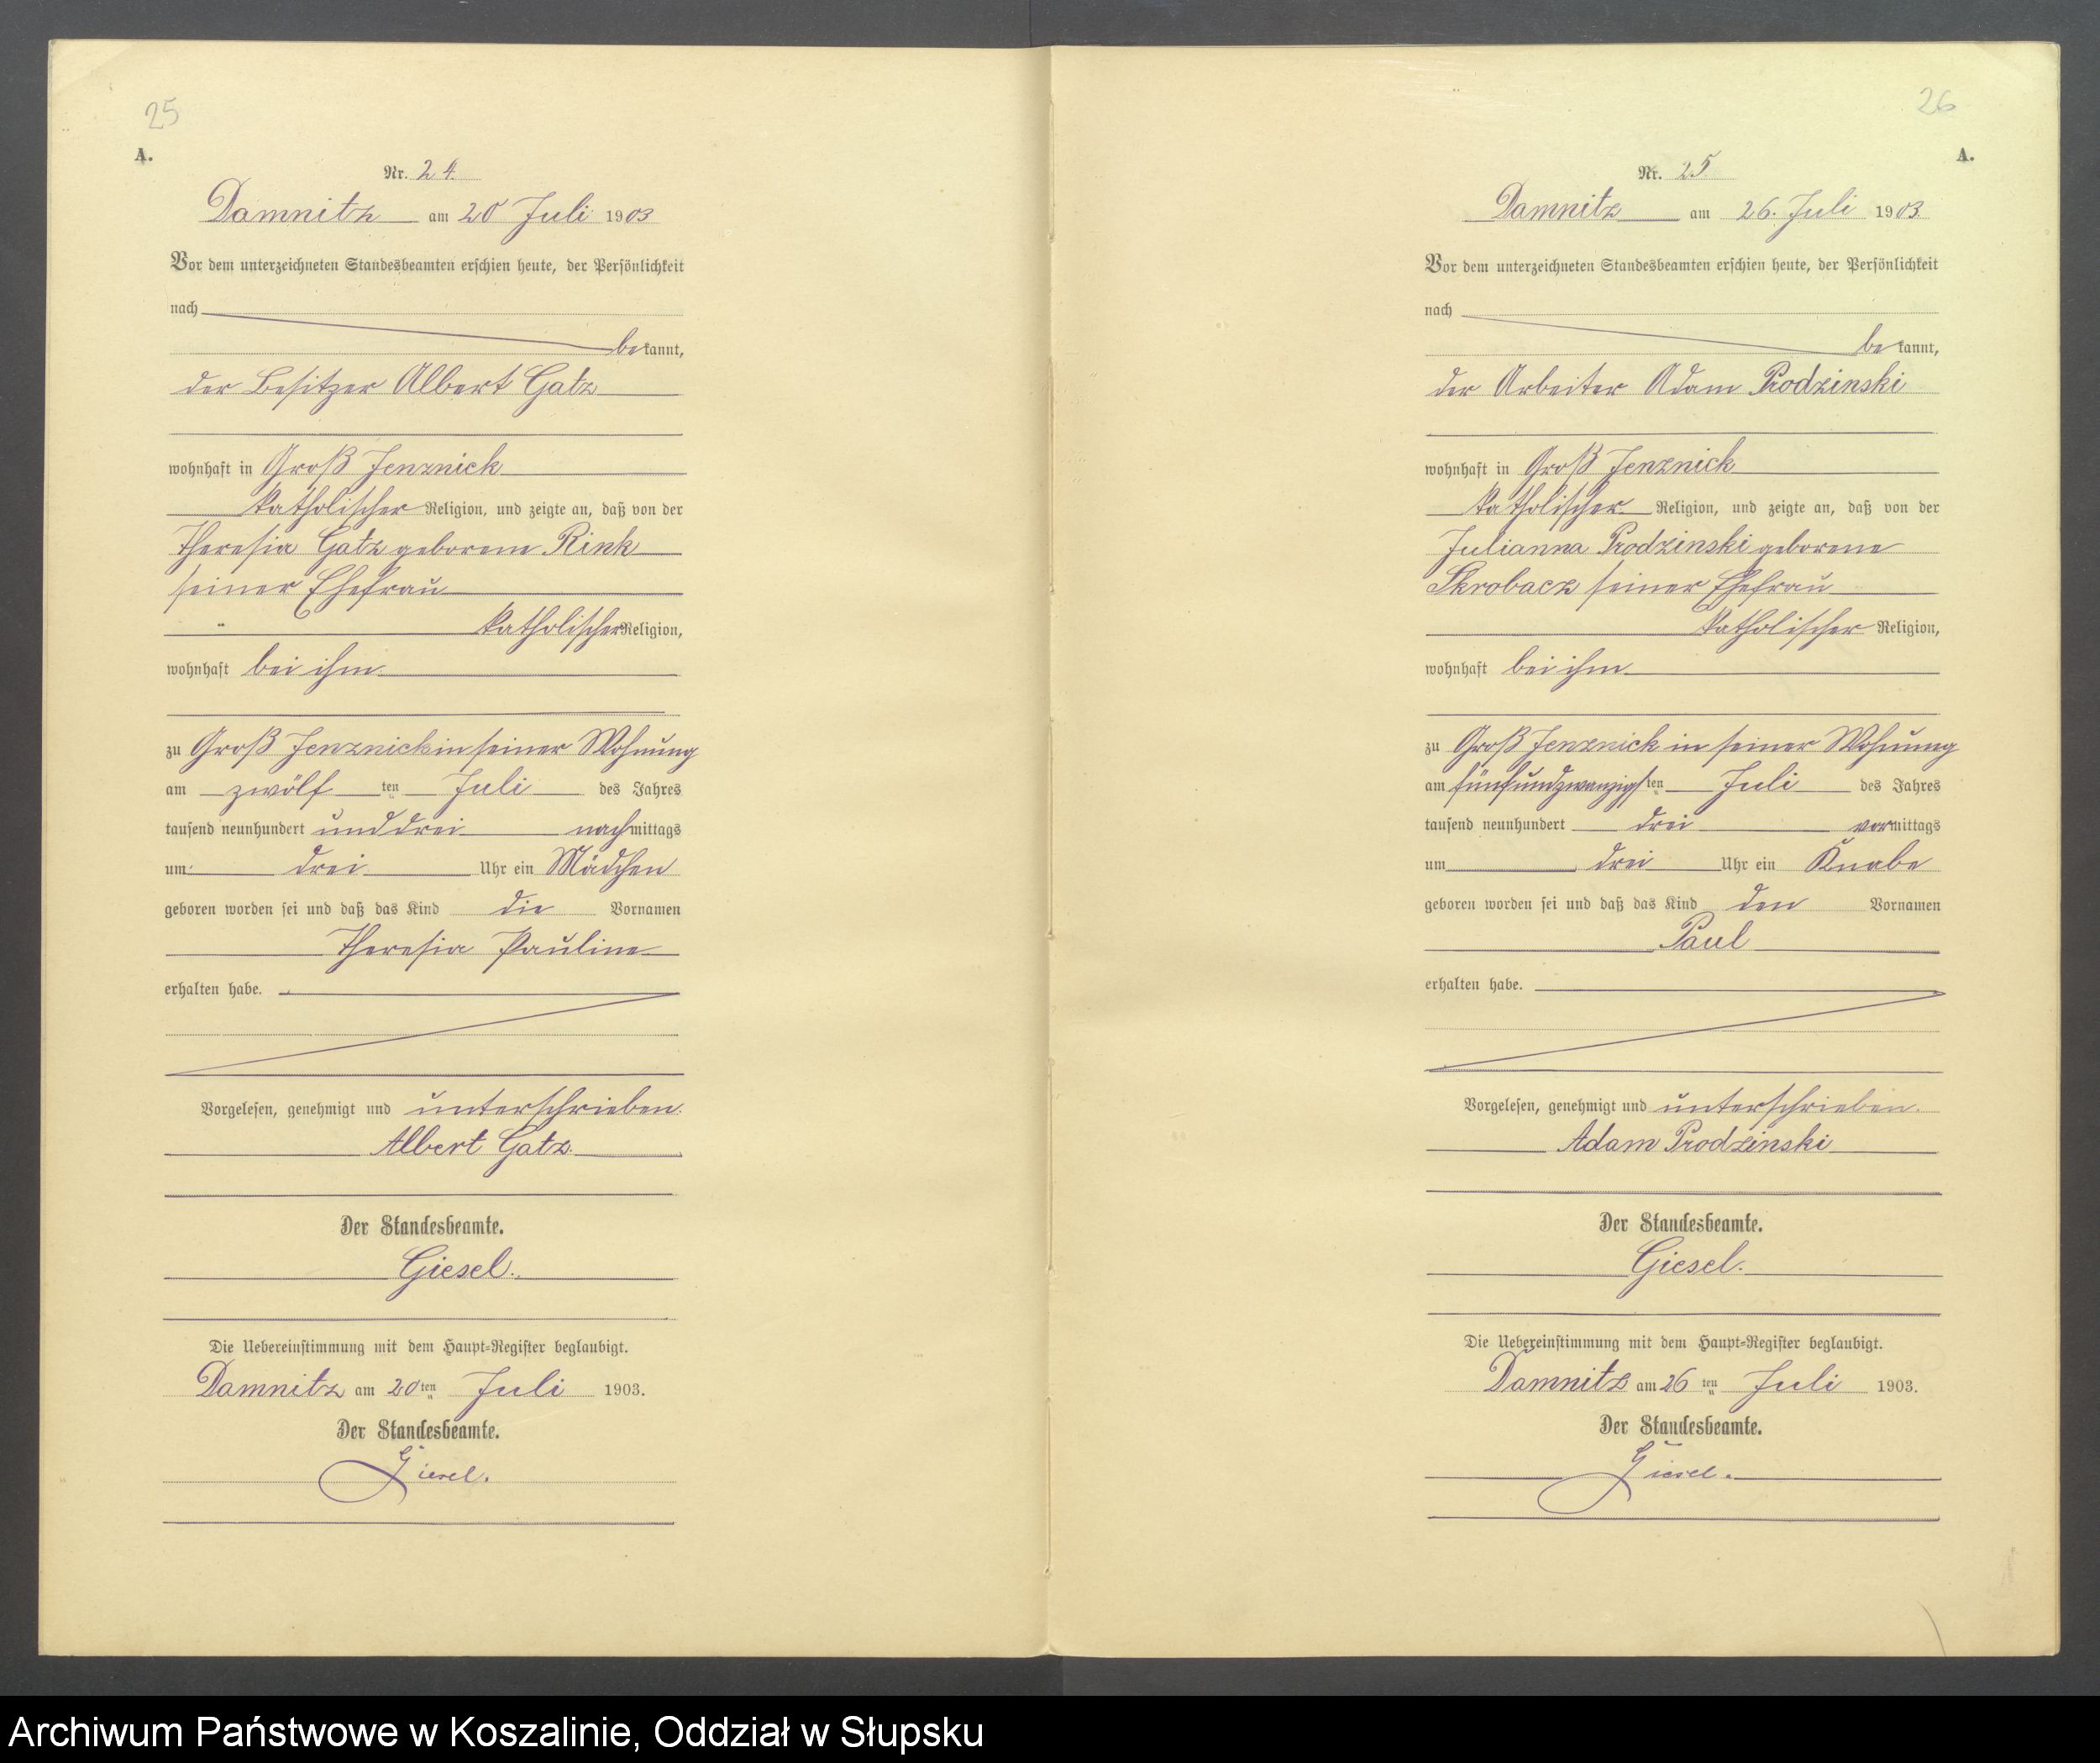 25
A.
Nr. 24.
Damnitz am 20 Juli 1903
Vor dem unterzeichneten Standesbeamten erschien heute, der Persönlichkeit
nach
bekannt,
der Besitzer Albert Gatz
wohnhaft in Groß Jenznick
katholischer Religion, und zeigte an, daß von der
Theresia Gatz geborene Rink
seiner Ehefrau
katholischer Religion,
wohnhaft bei ihm
zu Groß Jenznick in seiner Wohnung
am zwölften Juli des Jahres
tausend neunhundert und drei nachmittags
um drei Uhr ein Mädchen
geboren worden sei und daß das Kind die Vornamen
Theresia Pauline
erhalten habe.
Vorgelesen, genehmigt und unterschrieben.
Albert Gatz.
Der Standesbeamte.
Giesel.
Die Uebereinstimmung mit dem Haupt-Register beglaubigt.
Damnitz am 20ten Juli 1903.
Der Standesbeamte.
Giesel.
26
A.
Nr. 25.
Damnitz am 26. Juli 1903.
Vor dem unterzeichneten Standesbeamten erschien heute, der Persönlichkeit
nach
bekannt,
der Arbeiter Adam Prodzinski
wohnhaft in Groß Jenznick
katholischer Religion, und zeigte an, daß von der
Julianna Prodzinski geborene
Skrobacz seiner Ehefrau
katholischer Religion,
wohnhaft bei ihm
zu Groß Jenznick in seiner Wohnung
am fünfundzwanzigsten Juli des Jahres
tausend neunhundert drei vormittags
um drei Uhr ein Knabe
geboren worden sei und daß das Kind den Vornamen
Paul
erhalten habe.
Vorgelesen, genehmigt und unterschrieben.
Adam Prodzinski
Der Standesbeamte.
Giesel.
Die Uebereinstimmung mit dem Haupt-Register beglaubigt.
Damnitz am 26ten Juli 1903.
Der Standesbeamte.
Giesel.
Archiwum Państwowe w Koszalinie, Oddział w Słupsku